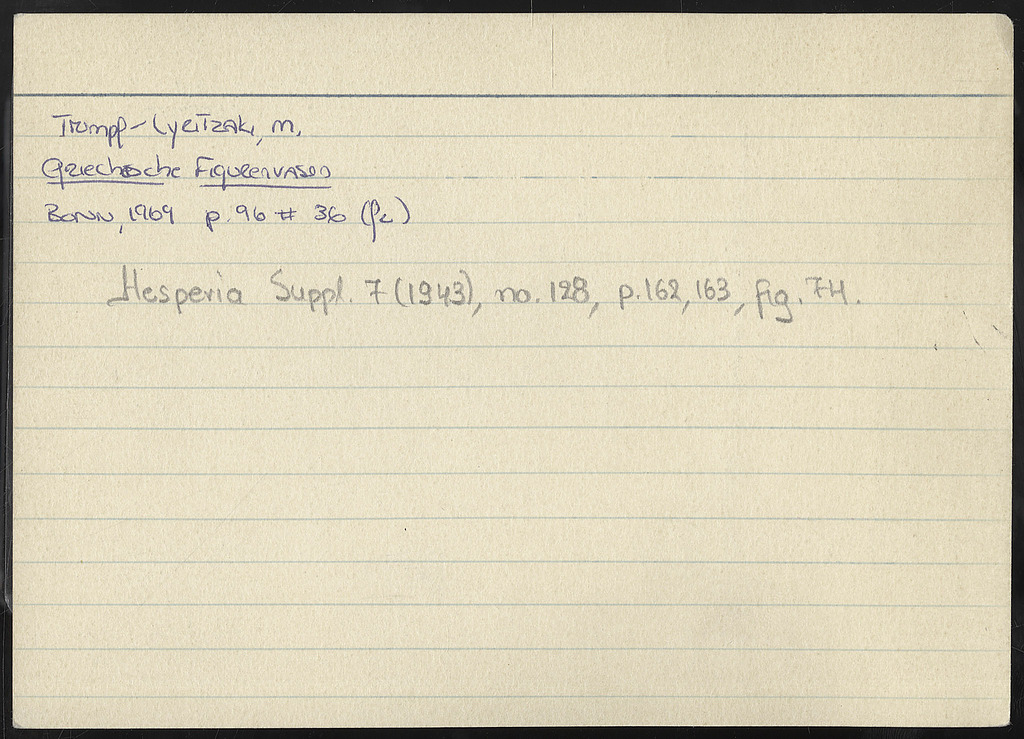 Trumpf-Lyritzaki, M.
Griechische Figurenvasen
Bonn, 1969 p. 96 # 36
Hesperia Suppl. 7 (1943), no. 128, p. 162, 163, fig. 74.